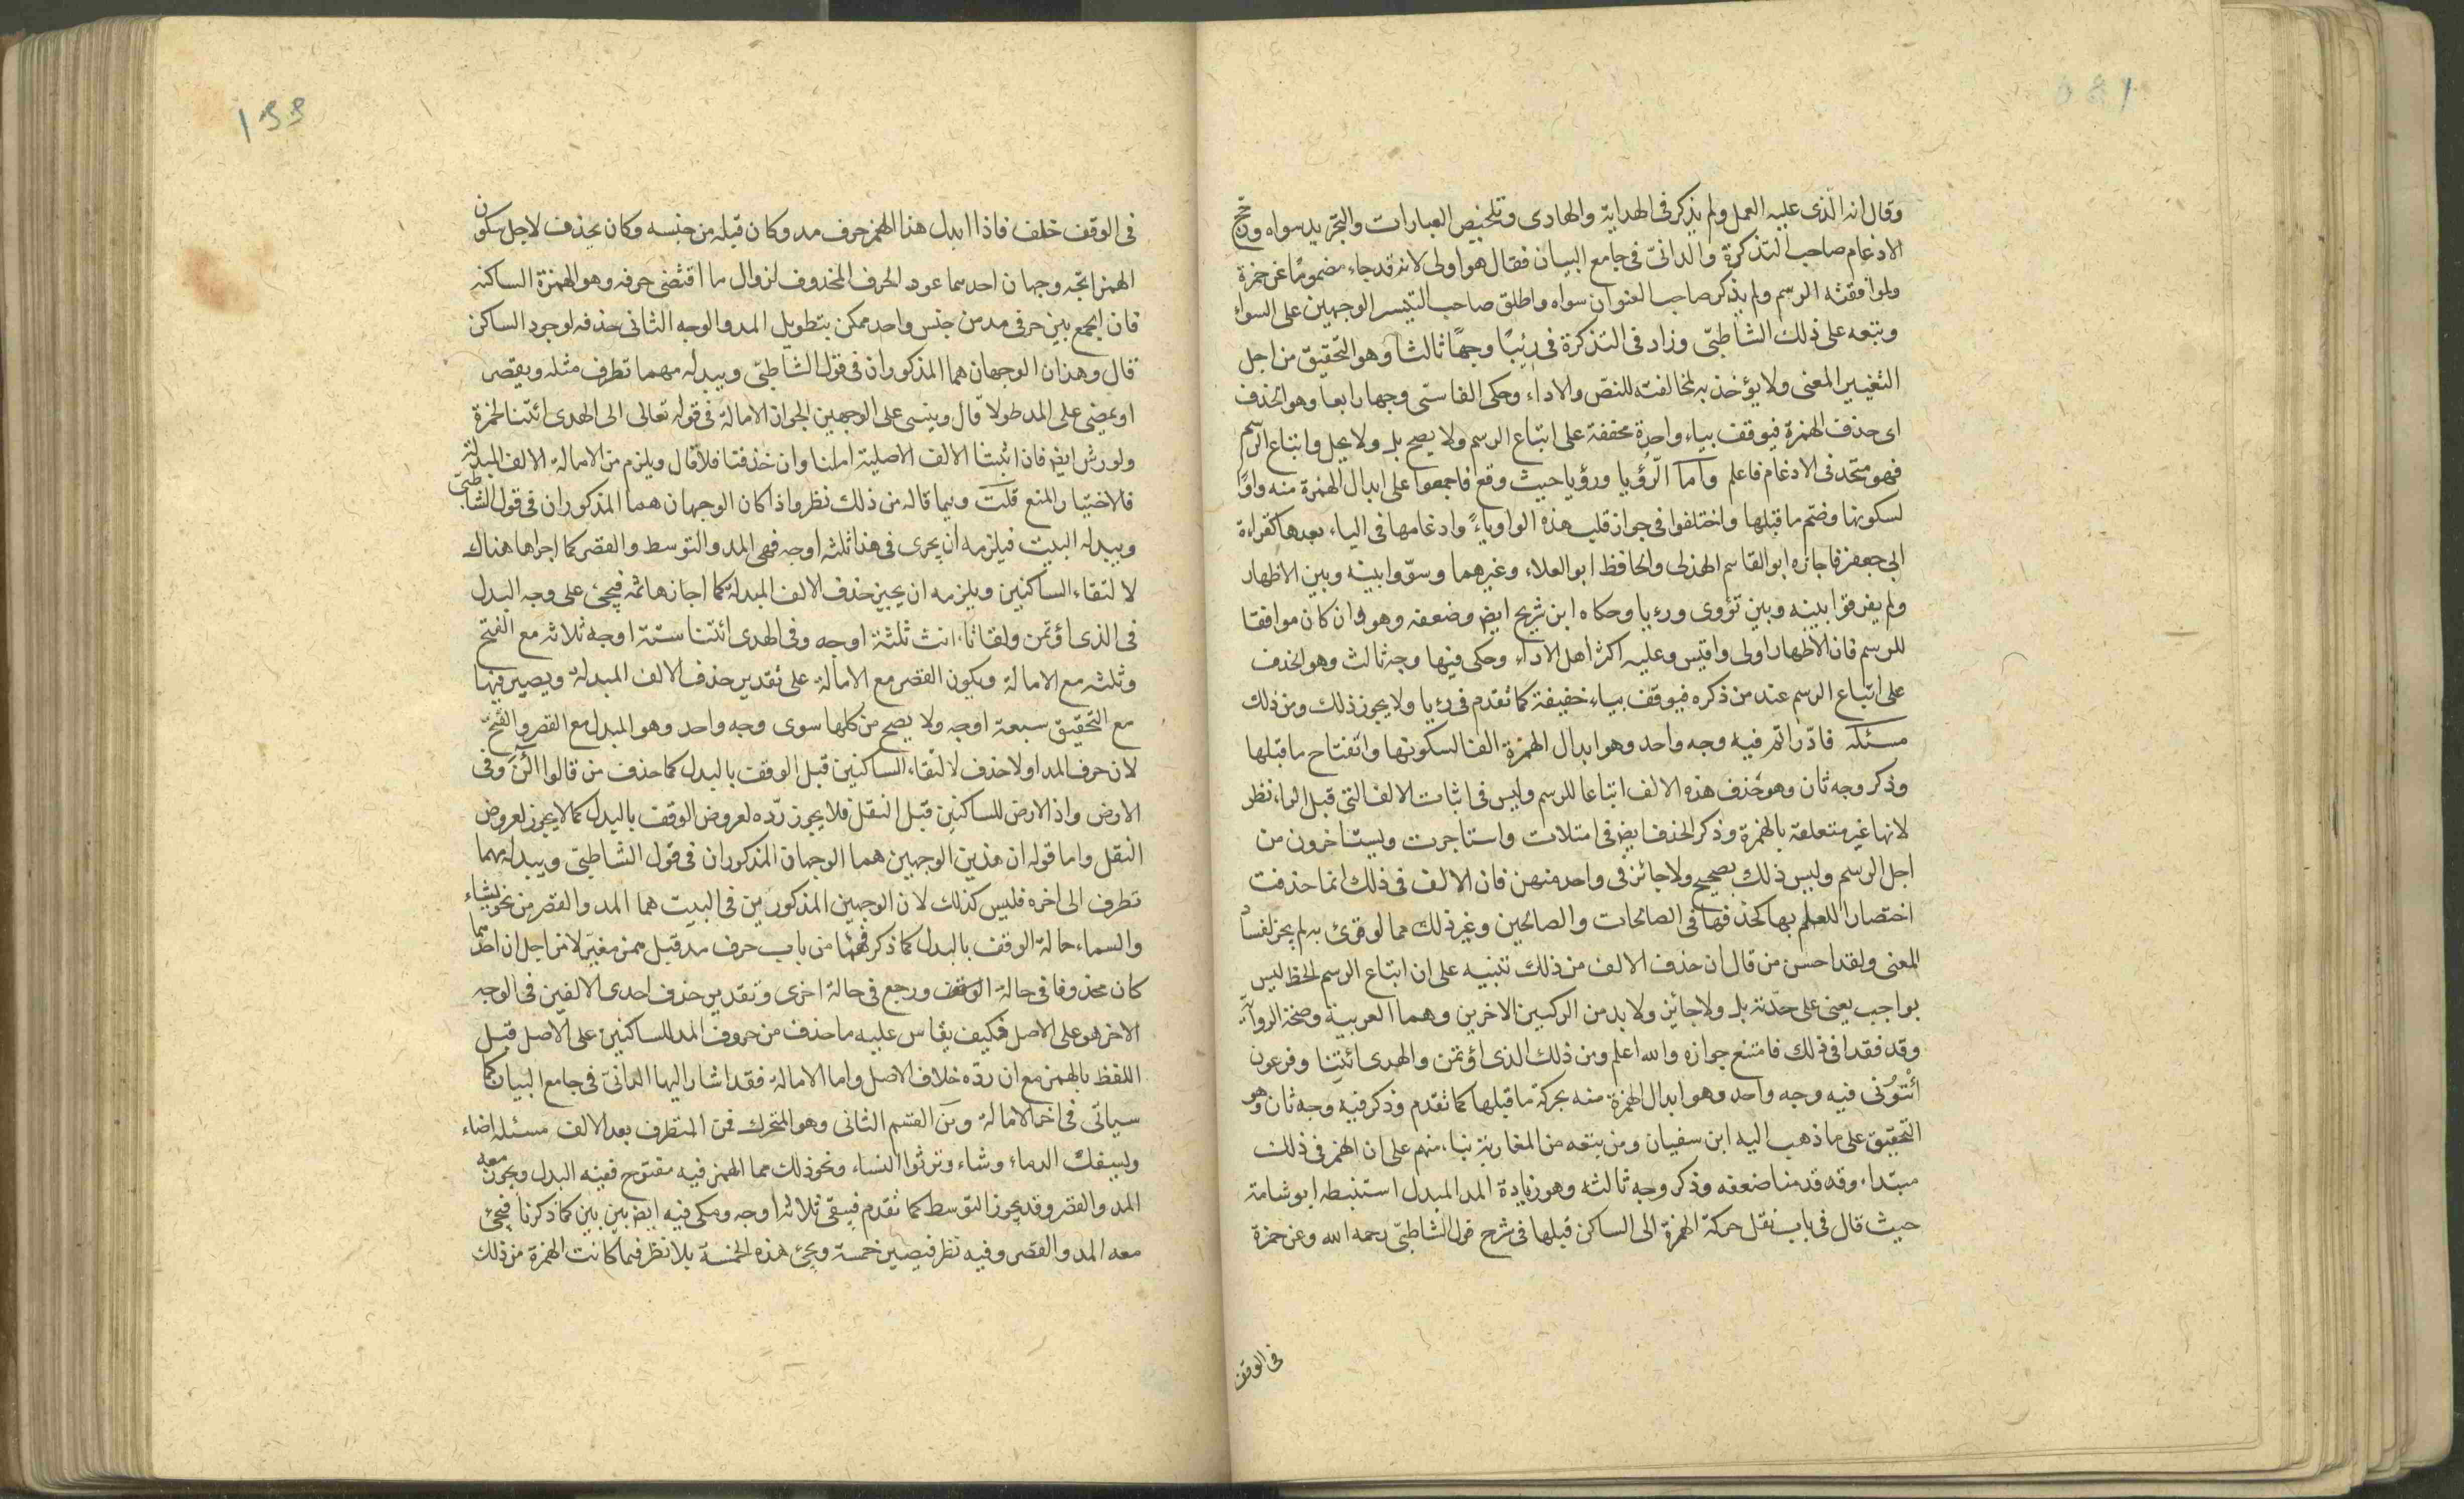 وقال انه الذى عليه العمل ولم يذكر فى الهداية والهادى وتلخيص العبارات والتجريد سواه ورجح
الادغام صاحب التذكرة والدانىّ فى جامع البيان فقال هو اولى لانه قد جاء مضمومًا عن حمزة
ولموافقته الرسم ولم يذكر صاحب العنوان سواه واطلق صاحب التيسر الوجهين على السواء
وتبعه على ذلك الشاطبّى وزاد فى التذكرة فى رئيًا وجهًا ثالثا وهو التحقيق من اجل
التغيير المعنى ولا يؤخذ به لمخالفته للنص والاداء وحكى الفاسّى وجها رابعا وهو الحذف
اى حذف الهمزة فيوقف بياء واحدة مخففة على اتباع الرسم ولا يصح بل ولا يحل واتباع الرسم
فهو متحد فى الادغام فاعلم واما الرُؤيا ورؤيا حيث وقع فاجمعوا على ابدال الهمزة منه واوًا
لسكونها وضم ما قبلها واختلفوا فى جواز قلب هذه الواو ياءً وادغامها فى الياء بعدها كقراءة
ابى جعفر فاجازه ابو القاسم الهذلى والحافظ ابو العلاء وغيرهما وسوّوا بينه وبين الاظهار
ولم يفرقوا بينه وبين تؤوى ورءيا وحكاه ابن شريح ايض وضعفه وهو وان كان موافقا
للرسم فان الاظهار اولى واقيس وعليه اكثر اهل الاداء وحكى فيها وجه ثالث وهو الحذف
على اتباع الرسم عند من ذكره فيوقف بياء خفيفة كما تقدم فى رءيا ولا يجوز ذلك ومن ذلك
مسئلة فادّراتم فيه وجه واحد وهو ابدال الهمزة الفا لسكونها وانفتاح ما قبلها
وذكر وجه ثان وهو حذف هذه الالف اتباعا للرسم وليس فى اثبات الالف التى قبل الراء نظر
لانها غير متعلقة بالهمزة وذكر الحذف ايض فى امتلات واستاجرت ويستاخرون من
اجل الرسم وليس ذلك بصحيح ولا جائز فى واحد منهن فان الالف فى ذلك انما حذفت
اختصارا للعلم بها كحذفها فى الصالحات والصالحين وغير ذلك مما لو قرئ به لم يجز لفساد
المعنى ولقد احسن من قال ان حذف الالف من ذلك تنبيه على ان اتباع الرسم الخط ليس
بواجب يعنى على حدّته بل ولا جائز ولا بد من الركنين الاخرين وهما العربية وصحة الرواية
وقد فقدا فى ذلك فامتنع جوازه والله اعلم ومن ذلك الذى اؤتمن والهدى ائتنا وفرعون
ائْتُوْنى فيه وجه واحد وهو ابدال الهمزة منه بحركة ما قبلها كما تقدم وذكر فيه وجه ثان وهو
التحقيق على ما ذهب اليه ابن سفيان ومن تبعه من المغاربة بناء منهم على ان الهمز فى ذلك
مبتداء وقد قدمنا ضعفه وذكر وجه ثالث وهو زيادة المد المبدل استنبطه ابو شامة
حيث قال فى باب نقل حركة الهمزة الى الساكن قبلها فى شرح قول الشاطبّى رحمه الله وعن حمزة
فى الوقف
١٤٤
فى الوقف خلف فاذا ابدل هذا الهمز حرف مد وكان قبله من جنسه وكان يحذف لاجل سكون
الهمز اتجه وجهان احدهما عود الحرف المحذوف لزوال ما اقتضى حرفه وهو الهمزة الساكنه
فان الجمع بين حرفى مد من جنس واحد ممكن بتطويل المد والوجه الثانى حذفه لوجود الساكن
قال وهذان الوجهان هما المذكوران فى قول الشاطبّى ويبدله مهما تطرف مثله ويقصر
او يمضى على المد طولا قال وينبى على الوجهين الجواز الامالة فى قوله تعالى الى الهدى ائتنا لحمزة
ولورش ايض فان اثبتنا الالف الاصلية املنا وان حذفنا فلا قال ويلزم من الامالة الالف المبدلة
فالاختيار المنع قلت وفيما قاله من ذلك نظر واذا كان الوجهان هما المذكوران فى قول الشاطبّى
ويبدله البيت فيلزمه ان يجرى فى هذا ثلثه اوجه فهى المد والتوسط والقصر كما اجراها هناك
لالتقاء الساكنين ويلزمه ان يجيز حذف الالف المبدلة كما اجازها ثمه فيجئ على وجه البدل
فى الذى اؤتمن ولقائنا انت ثلثة اوجه وفى الهدى ائتنا ستة اوجه ثلاثه مع الفتح
وثلثه مع الامالة ويكون القصر مع الامالة على تقدير حذف الالف المبدلة ويصير فيها
مع التحقيق سبعة اوجه ولا يصح من كلها سوى وجه واحد وهو المبدل مع القصر والفتح
لان حرف المد اولا حذف لالتقاء الساكنين قبل الوقف بالبدل كما حذف من قالوا الئن وفى
الارض واذ الارض للساكنين قبل النقل فلا يجوز ردّه لعروض الوقف بالبدل كما لا يجوز لعروض
النقل واما قوله ان هذين الوجهين هما الوجهان المذكوران فى قول الشاطبّى ويبدله مهما
تطرف الى اخره فليس كذلك لان الوجهين المذكورين فى البيت هما المد والقصر من نحو يشاء
والسماء حالة الوقف بالبدل كما ذكر فهما من باب حرف مد قبل همز مغيّر لا من اجل ان احدهما
كان محذوفا فى حالة الوقف ورجع فى حالة اخرى وتقدير حذف احدى الالفين فى الوجه
الاخر هو على الاصل فكيف يقاس عليه ما حذف من حروف المد للساكنين على الاصل قبل
اللفظ بالهمز مع ان ردّه خلاف الاصل واما الامالة فقد اشار اليها الدانىّ فى جامع البيان كما
سياتى فى اخر الامالة ومن القسم الثانى وهو المتحرك فمن المتطرف بعد الالف مسئلة اضاء
ويسفك الدماء وشاء وترثوا النساء ونحو ذلك مما الهمز فيه مفتوح ففيه البدل ويجوز معه
المد والقصر وقد يجوز التوسط كما تقدم فيبقى ثلاثه اوجه وحكى فيه ايض بين بين كما ذكرنا فيجئ
معه المد والقصر وفيه نظر فيصير خمسة ويجئ هذه الخمسة بلا نظر فيما كانت الهمزة من ذلك